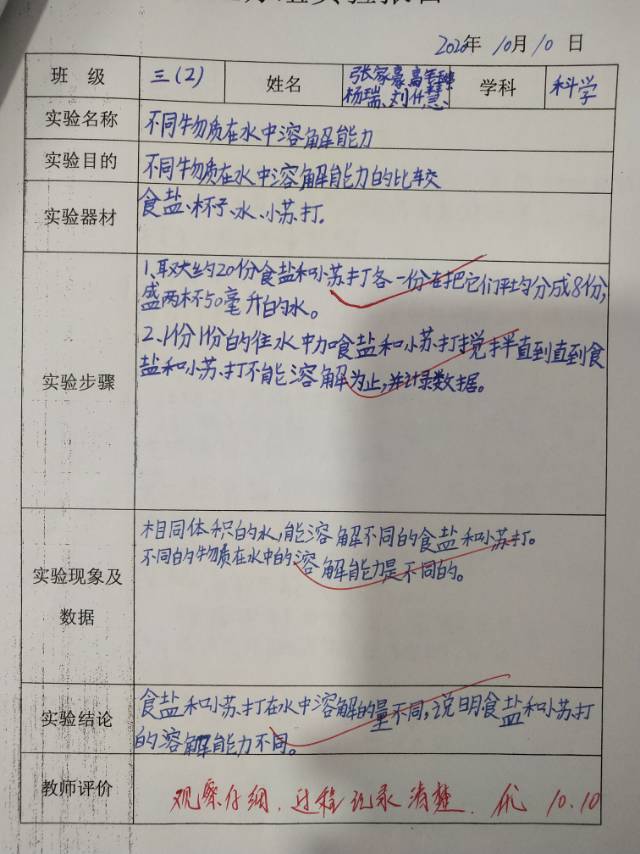 实验报告
2020年10月10日
班 级 三(2) 姓名 张家豪、高 杨瑞、刘什慧、 学科 科学
实验名称 不同物质在水中溶解能力
实验目的 不同物质在水中溶解能力的比较
实验器材 食盐、杯子、水、小苏打。
实验步骤
1、取大约20份食盐和小苏打各一份在把它们平均分成8份,
盛两杯50毫升的水。
2、1份1份的往水中加食盐和小苏打搅拌直到直到食
盐和小苏打不能溶解为止,并记录数据。
实验现象及
数据
相同体积的水,能溶解不同的食盐和小苏打。
不同的物质在水中的溶解能力是不同的。
实验结论
食盐和小苏打在水中溶解的量不同,说明食盐和小苏打
的溶解能力不同。
教师评价 观察仔细、过程记录清楚. 优 10.10